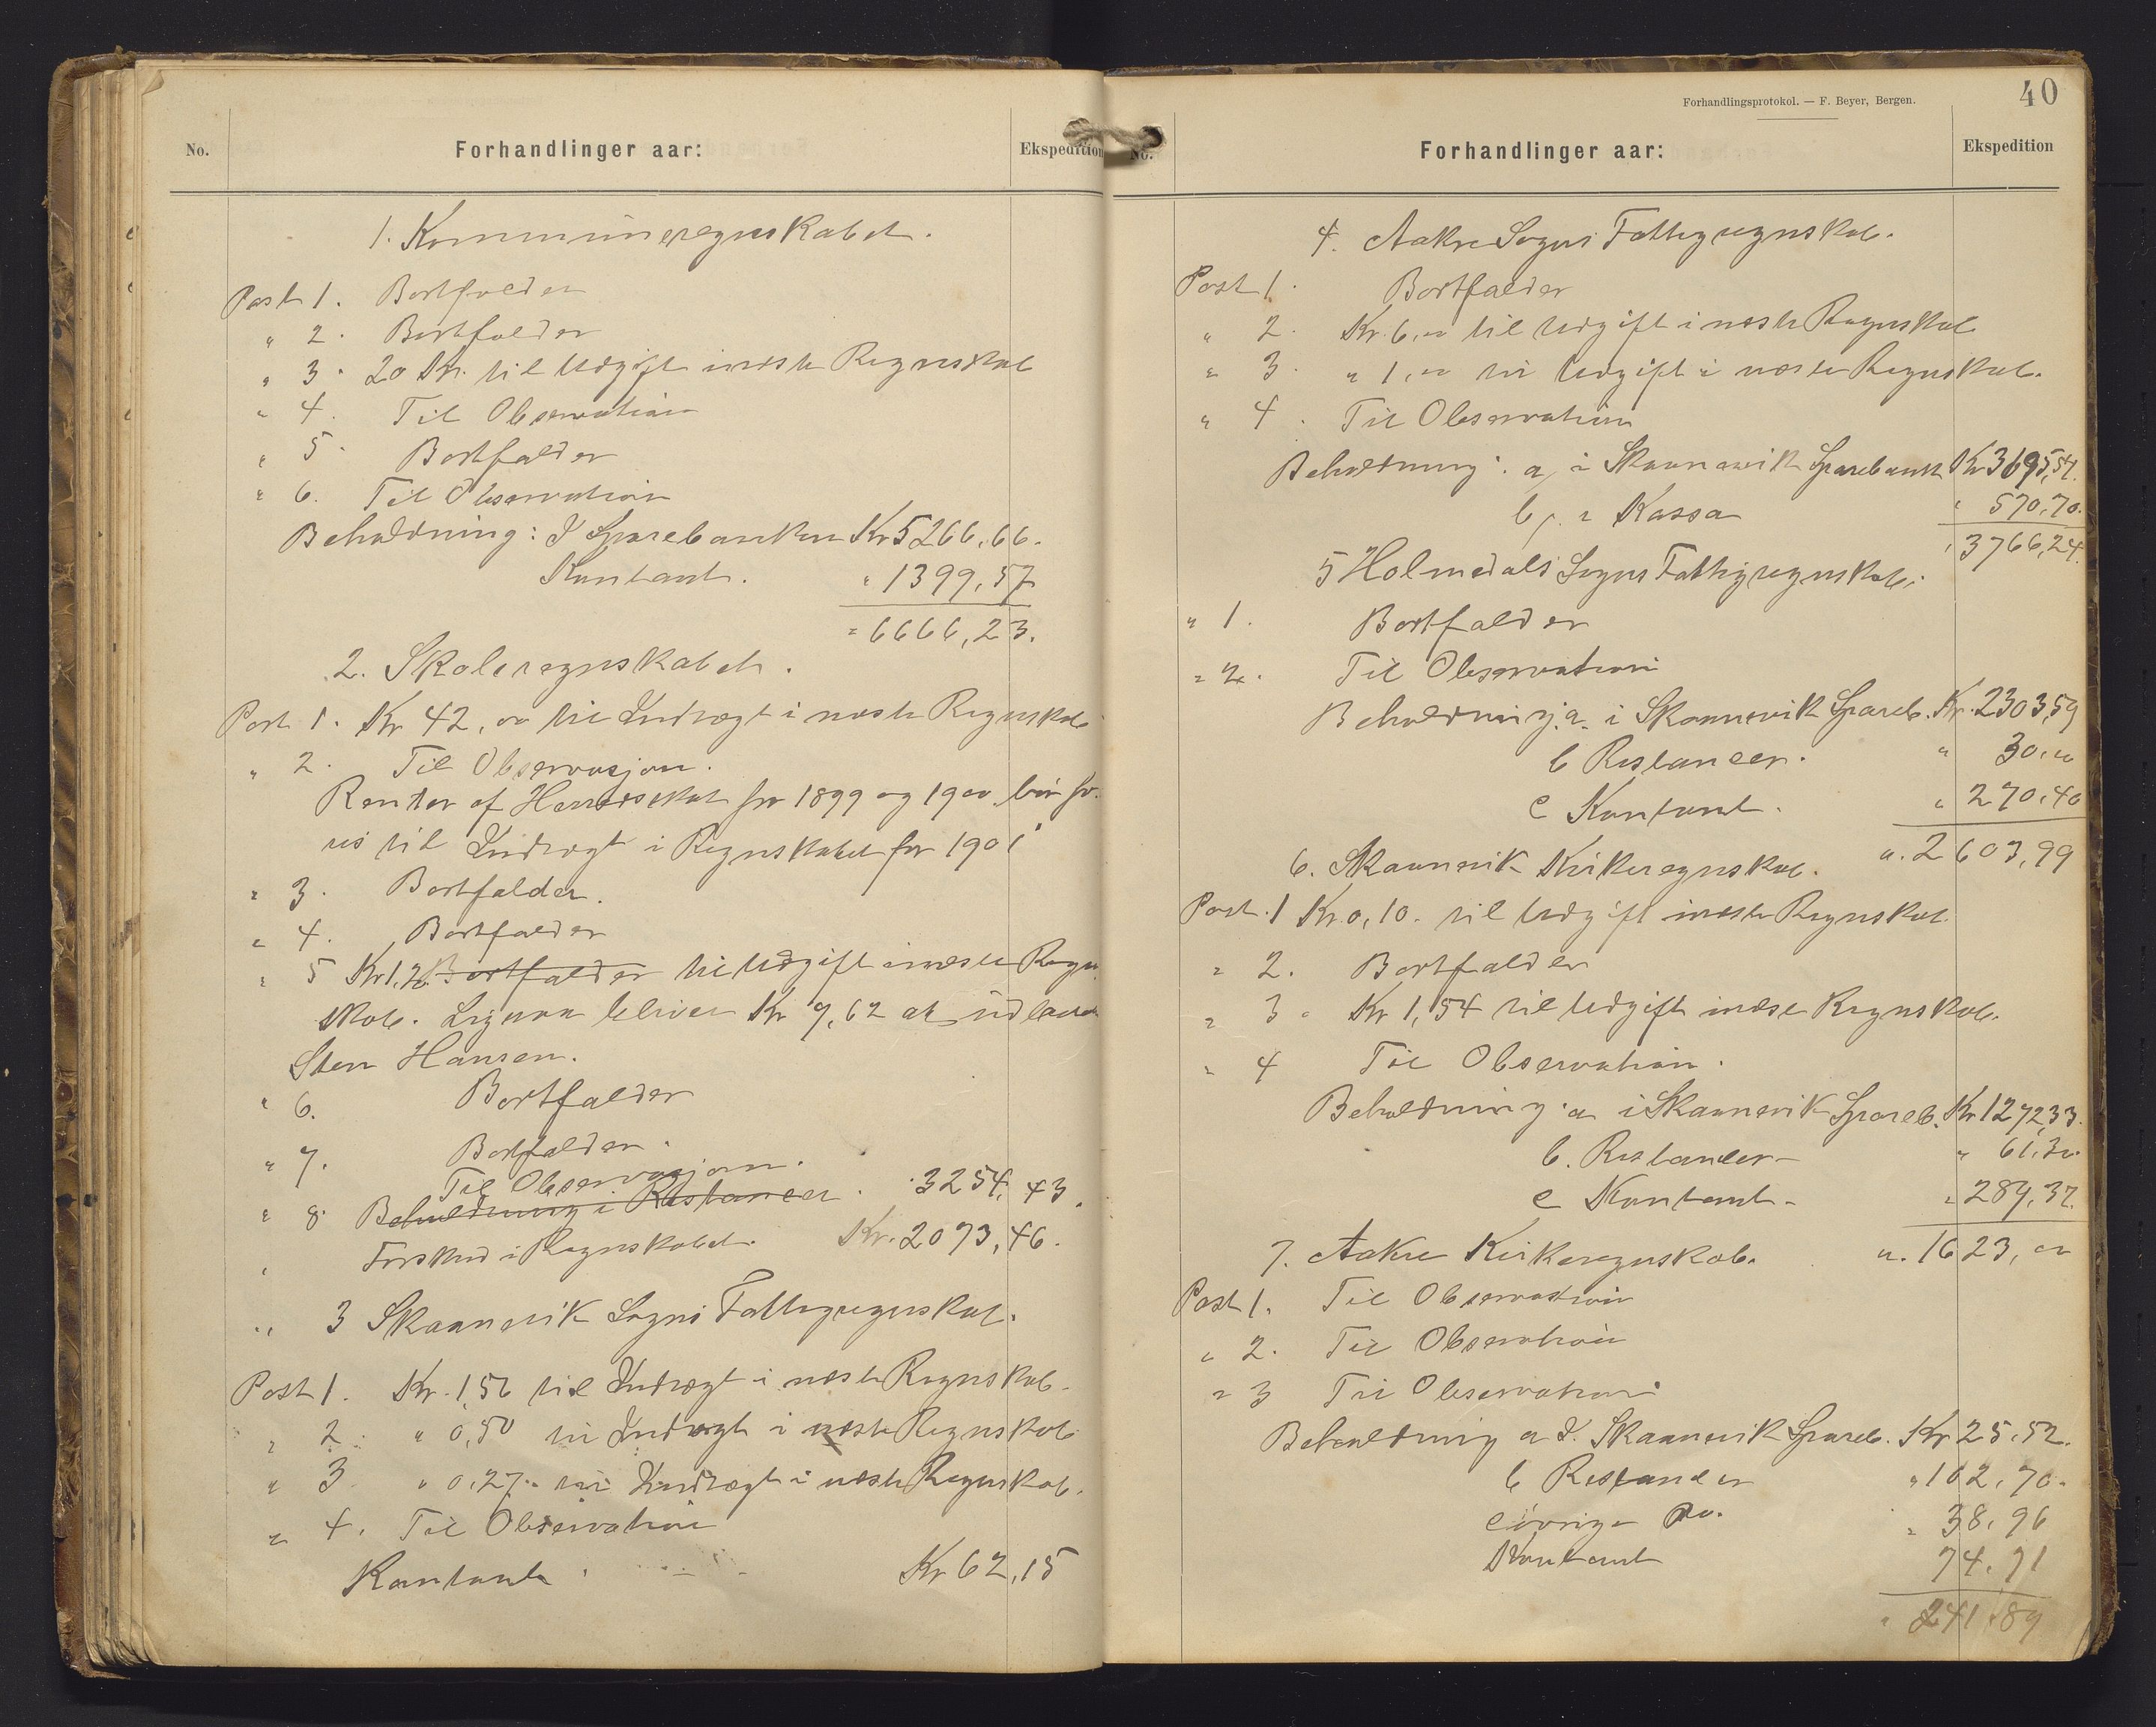 No.
Forhandlinger aar:
Ekspedition
1. Kommuneregnskabet.
Post 1. Bortfalder
" 2. Bortfalder
" 3. 20 Kr. til Udgift i neste Regnskab
" 4. Til Observation
" 5. Bortfalder
" 6. Til Observation
Beholdning: I Sparebanken Kr 5266,66.
Kontant. " 1399,57
" 6666,23.
2. Skoleregnskabet.
Post 1. Kr 42,00 til Indtægt i neste Regnskab
" 2. Til Observasjon.
Renter af Herredsskat for 1899 og 1900 bør fø-
res til Indtægt i Regnskabet for 1901
" 3. Bortfalder.
" 4. Bortfalder
" 5 Kr 1,20 Bortfalder til Udgift i neste Regn-
skab. bliver Kr 9,62 at
Sten Hansen.
" 6. Bortfalder
" 7. Bortfalder.
Til Observasjon.
" 8. Beholdning i Restancer 3254,43.
" Forskud i Regnskabet. Kr. 2073,46.
" 3 Skaanevik Sogns Fattigregnskab.
Post 1. Kr. 1,56 til Indtægt i neste Regnskab.
" 2. " 0,50 til Indtægt i neste Regnskab
" 3. " 0,27 til Indtægt i neste Regnskab.
" 4. Til Observation
Kontant Kr 62,15
Forhandlingsprotokol. — F. Beyer, Bergen.
40
No.
Forhandlinger aar:
Ekspedition
4. Aakre Sogns Fattigregnskab.
Post 1. Bortfalder
" 2. Kr. 6,00 til Udgift i neste Regnskab
" 3. " 1,00 til Udgift i neste Regnskab.
" 4. Til Observation
Beholdning: a, i Skaanevik Sparebank Kr 3695,54.
b, i Kassa " 570,70.
" 3766,24.
5 Holmedals Sogns Fattigregnskab.
" 1. Bortfalder
" 2. Til Observation
Beholdning: a. i Skaanevik Spareb. Kr. 2303,59
b Restancer. " 30,00
c Kontant. " 270,40
". 2603,99
6. Skaanevik Kirkeregnskab.
Post. 1 Kr. 0,10. til Udgift i neste Regnskab.
" 2. Bortfalder
" 3. Kr 1,54 til Udgift i neste Regnskab.
" 4 Til Observation.
Beholdning: a i Skaanevik Spareb. Kr 1272,33.
b. Restancer- " 61,30.
c Kontant- " 289,37.
". 1623,00
7. Aakre Kirkeregnskab.
Post 1. Til Observation
" 2. Til Observation
" 3 Til Observation
Beholdning a I. Skaanevik Spareb. Kr 25,52.
b Restancer " 102,70.
c øvrige Do. " 38,96
Kontant 74,71
" 241,89